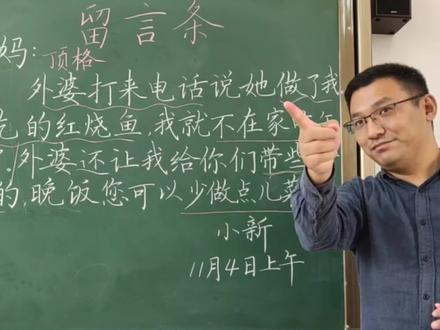 留言条
妈：
顶格
外婆打来电话说她做了我
的红烧鱼，我就不在家
。外婆还让我给你们带些
的，晚饭您可以少做点儿菜
小新
11月4日上午